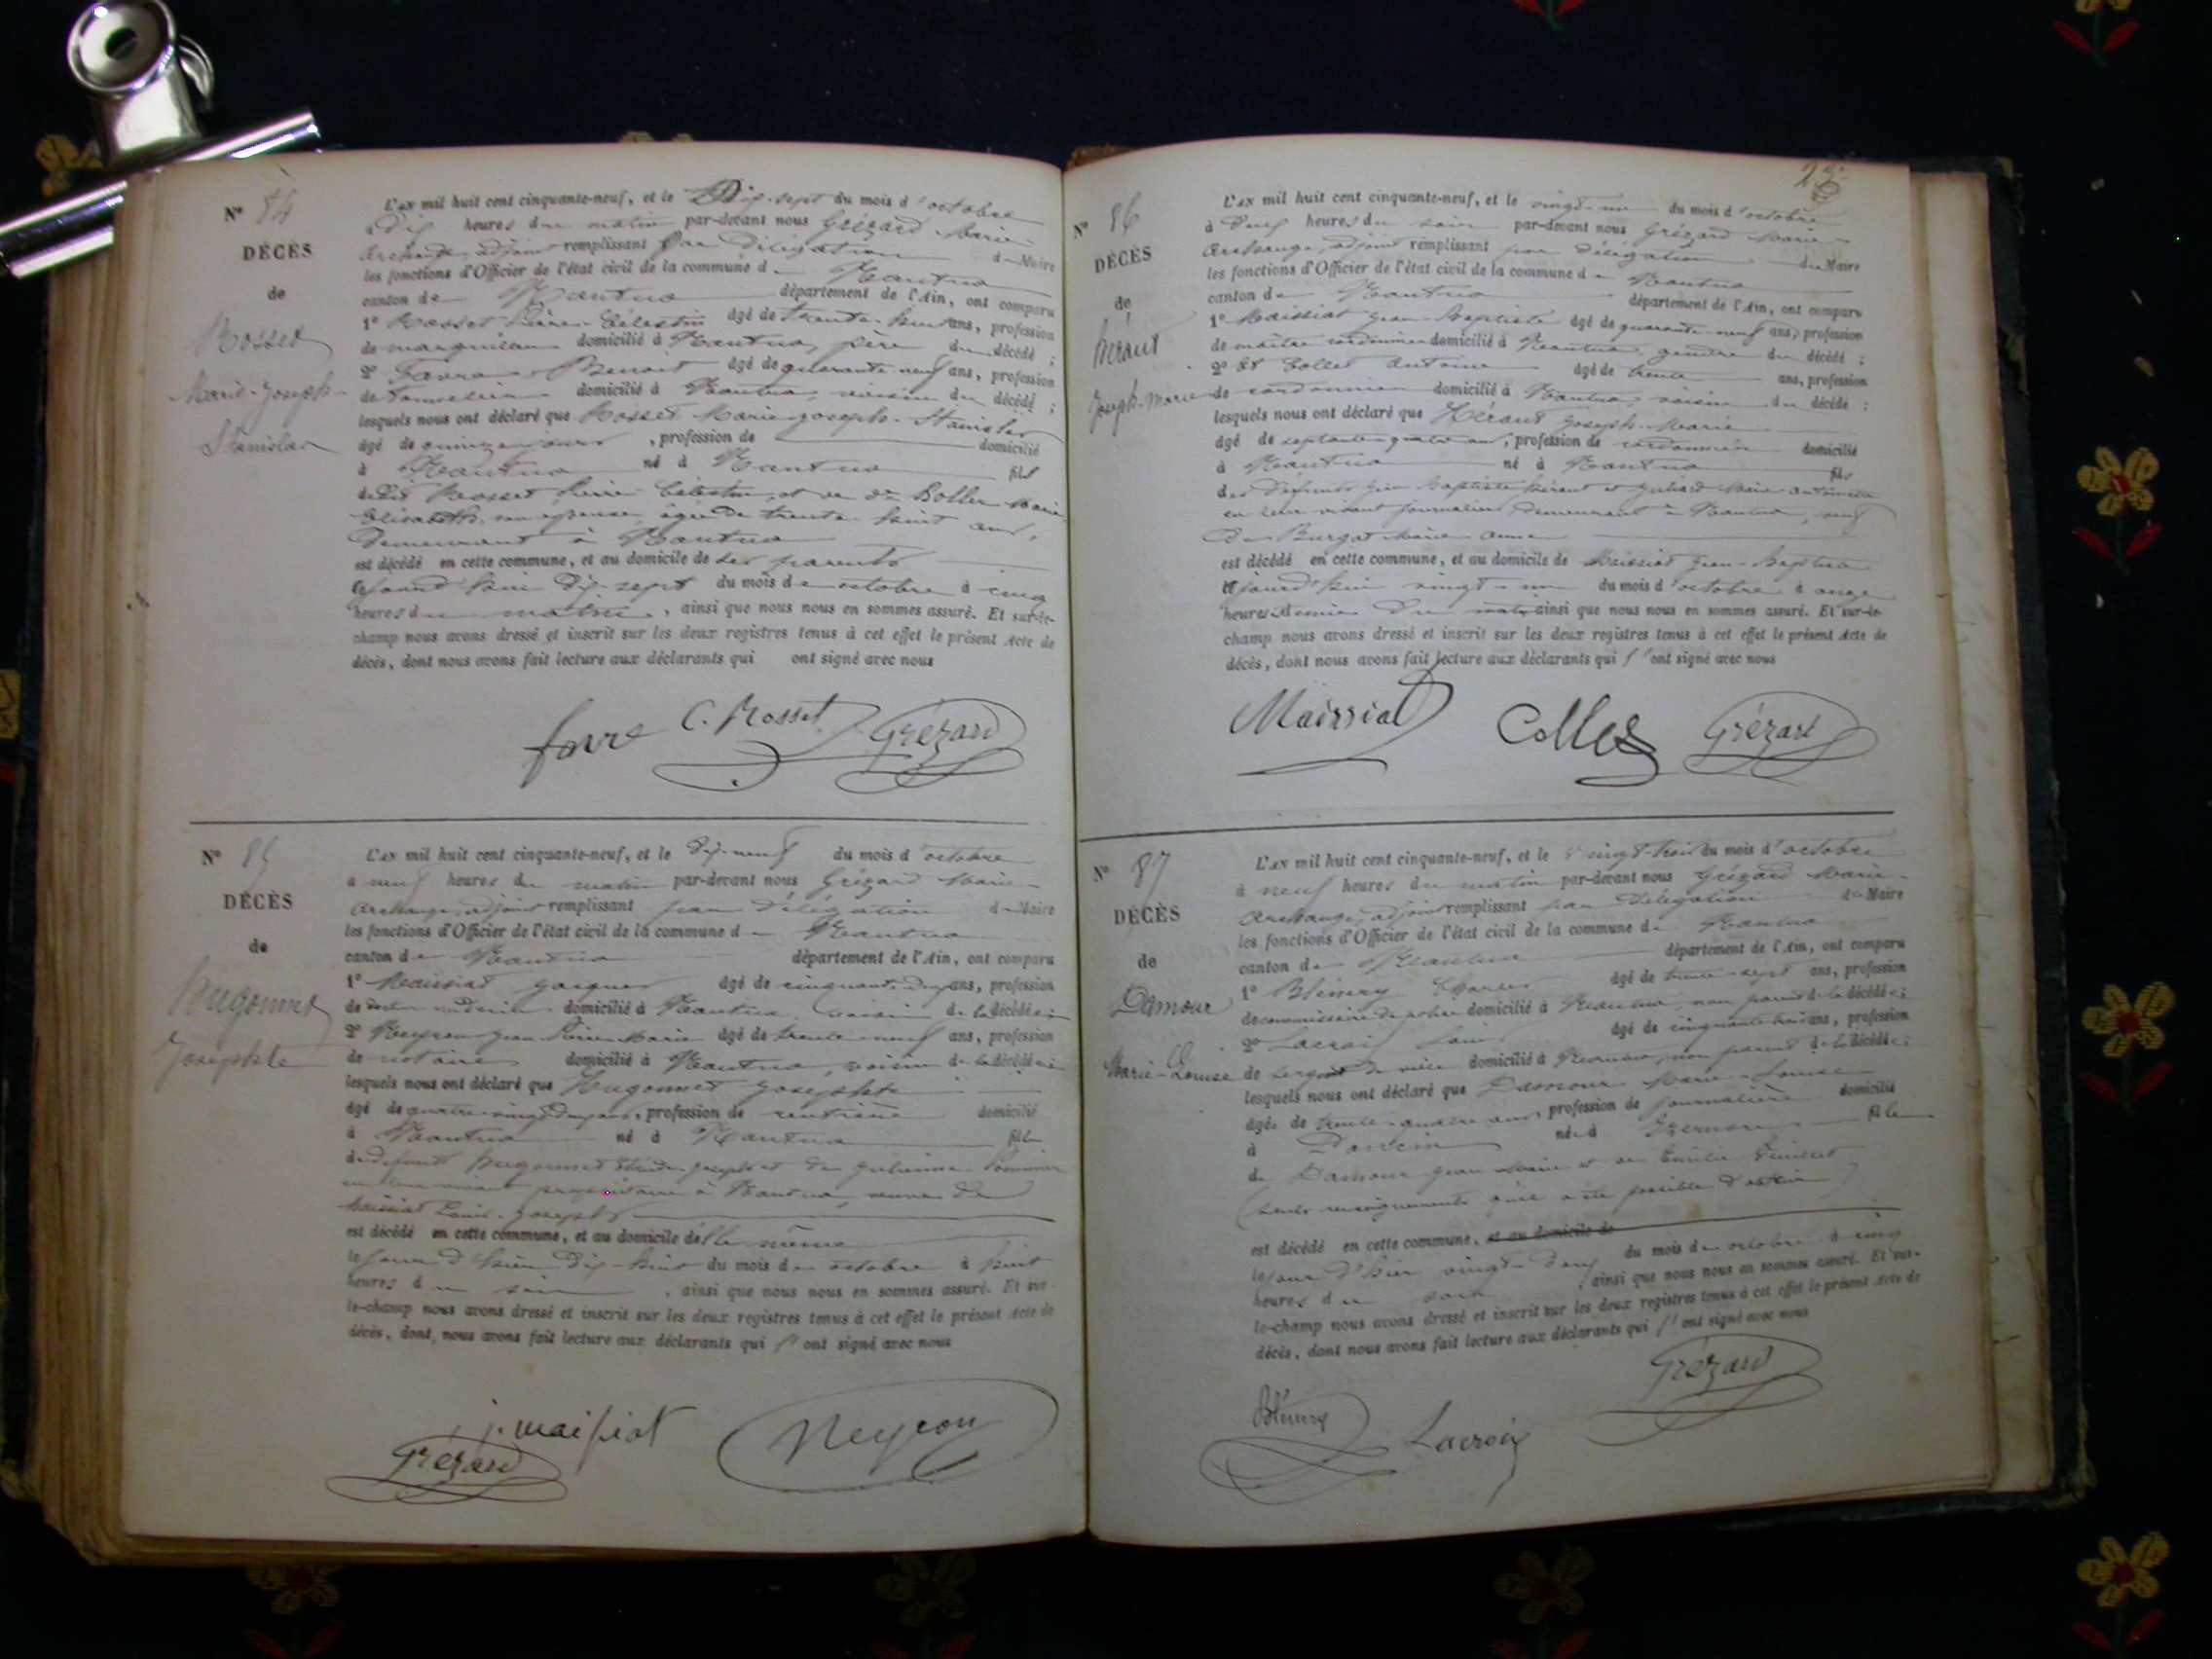 N° 84
DÉCÈS
de
Rosset
Marie-Joseph-
Stanislas
L'an mil huit cent cinquante-neuf, et le Dix-sept du mois d'octobre
à Dix heures du matin par-devant nous Grézard Marie-
Archange, adjoint remplissant par Délégation du Maire
les fonctions d'Officier de l'état civil de la commune de Nantua
canton de Nantua département de l'Ain, ont comparu
1° Rosset Pierre Célestin âgé de trente-huit ans, profession
de domicilié à Nantua, père du décédé ;
2° Favre Benoit âgé de quarante neuf ans, profession
de domicilié à Nantua, voisin du décédé ;
lesquels nous ont déclaré que Rosset Marie-Joseph-Stanislas
âgé de quinze jours, profession de domicilié
à Nantua né à Nantua fils
dudit Rosset Pierre Célestin, et de Marie
Elisabeth, son épouse, âgée de trente huit ans,
demeurant à Nantua
est décédé en cette commune, et au domicile de ses parents
cejourd'hui dix-sept du mois de octobre à cinq
heures du matin, ainsi que nous nous en sommes assuré. Et sur-le-
champ nous avons dressé et inscrit sur les deux registres tenus à cet effet le présent Acte de
décès, dont nous avons fait lecture aux déclarants qui ont signé avec nous
favre C. Rosset Grézard
N° 85
DÉCÈS
de
Hugonnet
Josephte
L'an mil huit cent cinquante-neuf, et le dix-neuf du mois d'octobre
à neuf heures du matin par-devant nous Grézard Marie-
Archange, adjoint remplissant par délégation du Maire
les fonctions d'Officier de l'état civil de la commune de Nantua
canton de Nantua département de l'Ain, ont comparu
1° Maissiat Jacques âgé de cinquante-deux ans, profession
de docteur médecin domicilié à Nantua, voisin de la décédée ;
2° Neyron Jean Pierre Marie âgé de trente-neuf ans, profession
de notaire domicilié à Nantua, voisin de la décédée
lesquels nous ont déclaré que Hugonnet Josephte
âgé de quatre-vingt-deux ans, profession de rentière domicilié
à Nantua né à Nantua fille
de défunts Hugonnet Joseph et de Julienne
en leur vivant propriétaires à Nantua, veuve de
Maissiat Louis-Joseph
est décédé en cette commune, et au domicile d'elle même
le jour d'hier dix-huit du mois de octobre à huit
heures du soir, ainsi que nous nous en sommes assuré. Et sur-
le-champ nous avons dressé et inscrit sur les deux registres tenus à cet effet le présent Acte de
décès, dont nous avons fait lecture aux déclarants qui ont signé avec nous
j. maissiat Neyron
Grézard
N° 86
DÉCÈS
de
Héraut
Joseph-Marie
L'an mil huit cent cinquante-neuf, et le vingt-un du mois d'octobre
à deux heures du soir par-devant nous Grézard Marie-
Archange, adjoint remplissant par délégation du Maire
les fonctions d'Officier de l'état civil de la commune de Nantua
canton de Nantua département de l'Ain, ont comparu
1° Maissiat Jean-Baptiste âgé de quarante-neuf ans, profession
de maître cordonnier domicilié à Nantua, gendre du décédé ;
2° Et Collet Antoine âgé de trente ans, profession
de cordonnier domicilié à Nantua, voisin du décédé ;
lesquels nous ont déclaré que Héraut Joseph-Marie
âgé de septante-quatre ans, profession de cordonnier domicilié
à Nantua né à Nantua fils
des défunts Jean Baptiste Héraut et Marie Antoinette
en leur vivant journaliers, demeurant à Nantua, veuf
De Burgat Marie Anne
est décédé en cette commune, et au domicile de Maissiat Jean-Baptiste
cejourd'hui vingt-un du mois d'octobre à onze
heures et demie du matin, ainsi que nous nous en sommes assuré. Et sur-le-
champ nous avons dressé et inscrit sur les deux registres tenus à cet effet le présent Acte de
décès, dont nous avons fait lecture aux déclarants qui ont signé avec nous
Maissiat Collet Grézard
N° 87
DÉCÈS
de
Damour
Marie-Louise
L'an mil huit cent cinquante-neuf, et le vingt-trois du mois d'octobre
à neuf heures du matin par-devant nous Grézard Marie-
Archange, adjoint remplissant par Délégation du Maire
les fonctions d'Officier de l'état civil de la commune de Nantua
canton de Nantua département de l'Ain, ont comparu
1° Charles âgé de trente-sept ans, profession
de commissaire de police domicilié à Nantua, non parent de la décédée ;
2° Lacroix Louis âgé de cinquante-trois ans, profession
de sergent de ville domicilié à Nantua, non parent de la décédée ;
lesquels nous ont déclaré que Damour Marie-Louise
âgée de trente-quatre ans, profession de journalière domicilié
à née à fille
de Damour Jean Marie et de Emilie
(seuls renseignements qu'il a été possible d'obtenir)
est décédé en cette commune, et au domicile de
le jour d'hier vingt-deux du mois de octobre à cinq
heures du soir, ainsi que nous nous en sommes assuré. Et sur-
le-champ nous avons dressé et inscrit sur les deux registres tenus à cet effet le présent Acte de
décès, dont nous avons fait lecture aux déclarants qui ont signé avec nous
Grézard
Lacroix